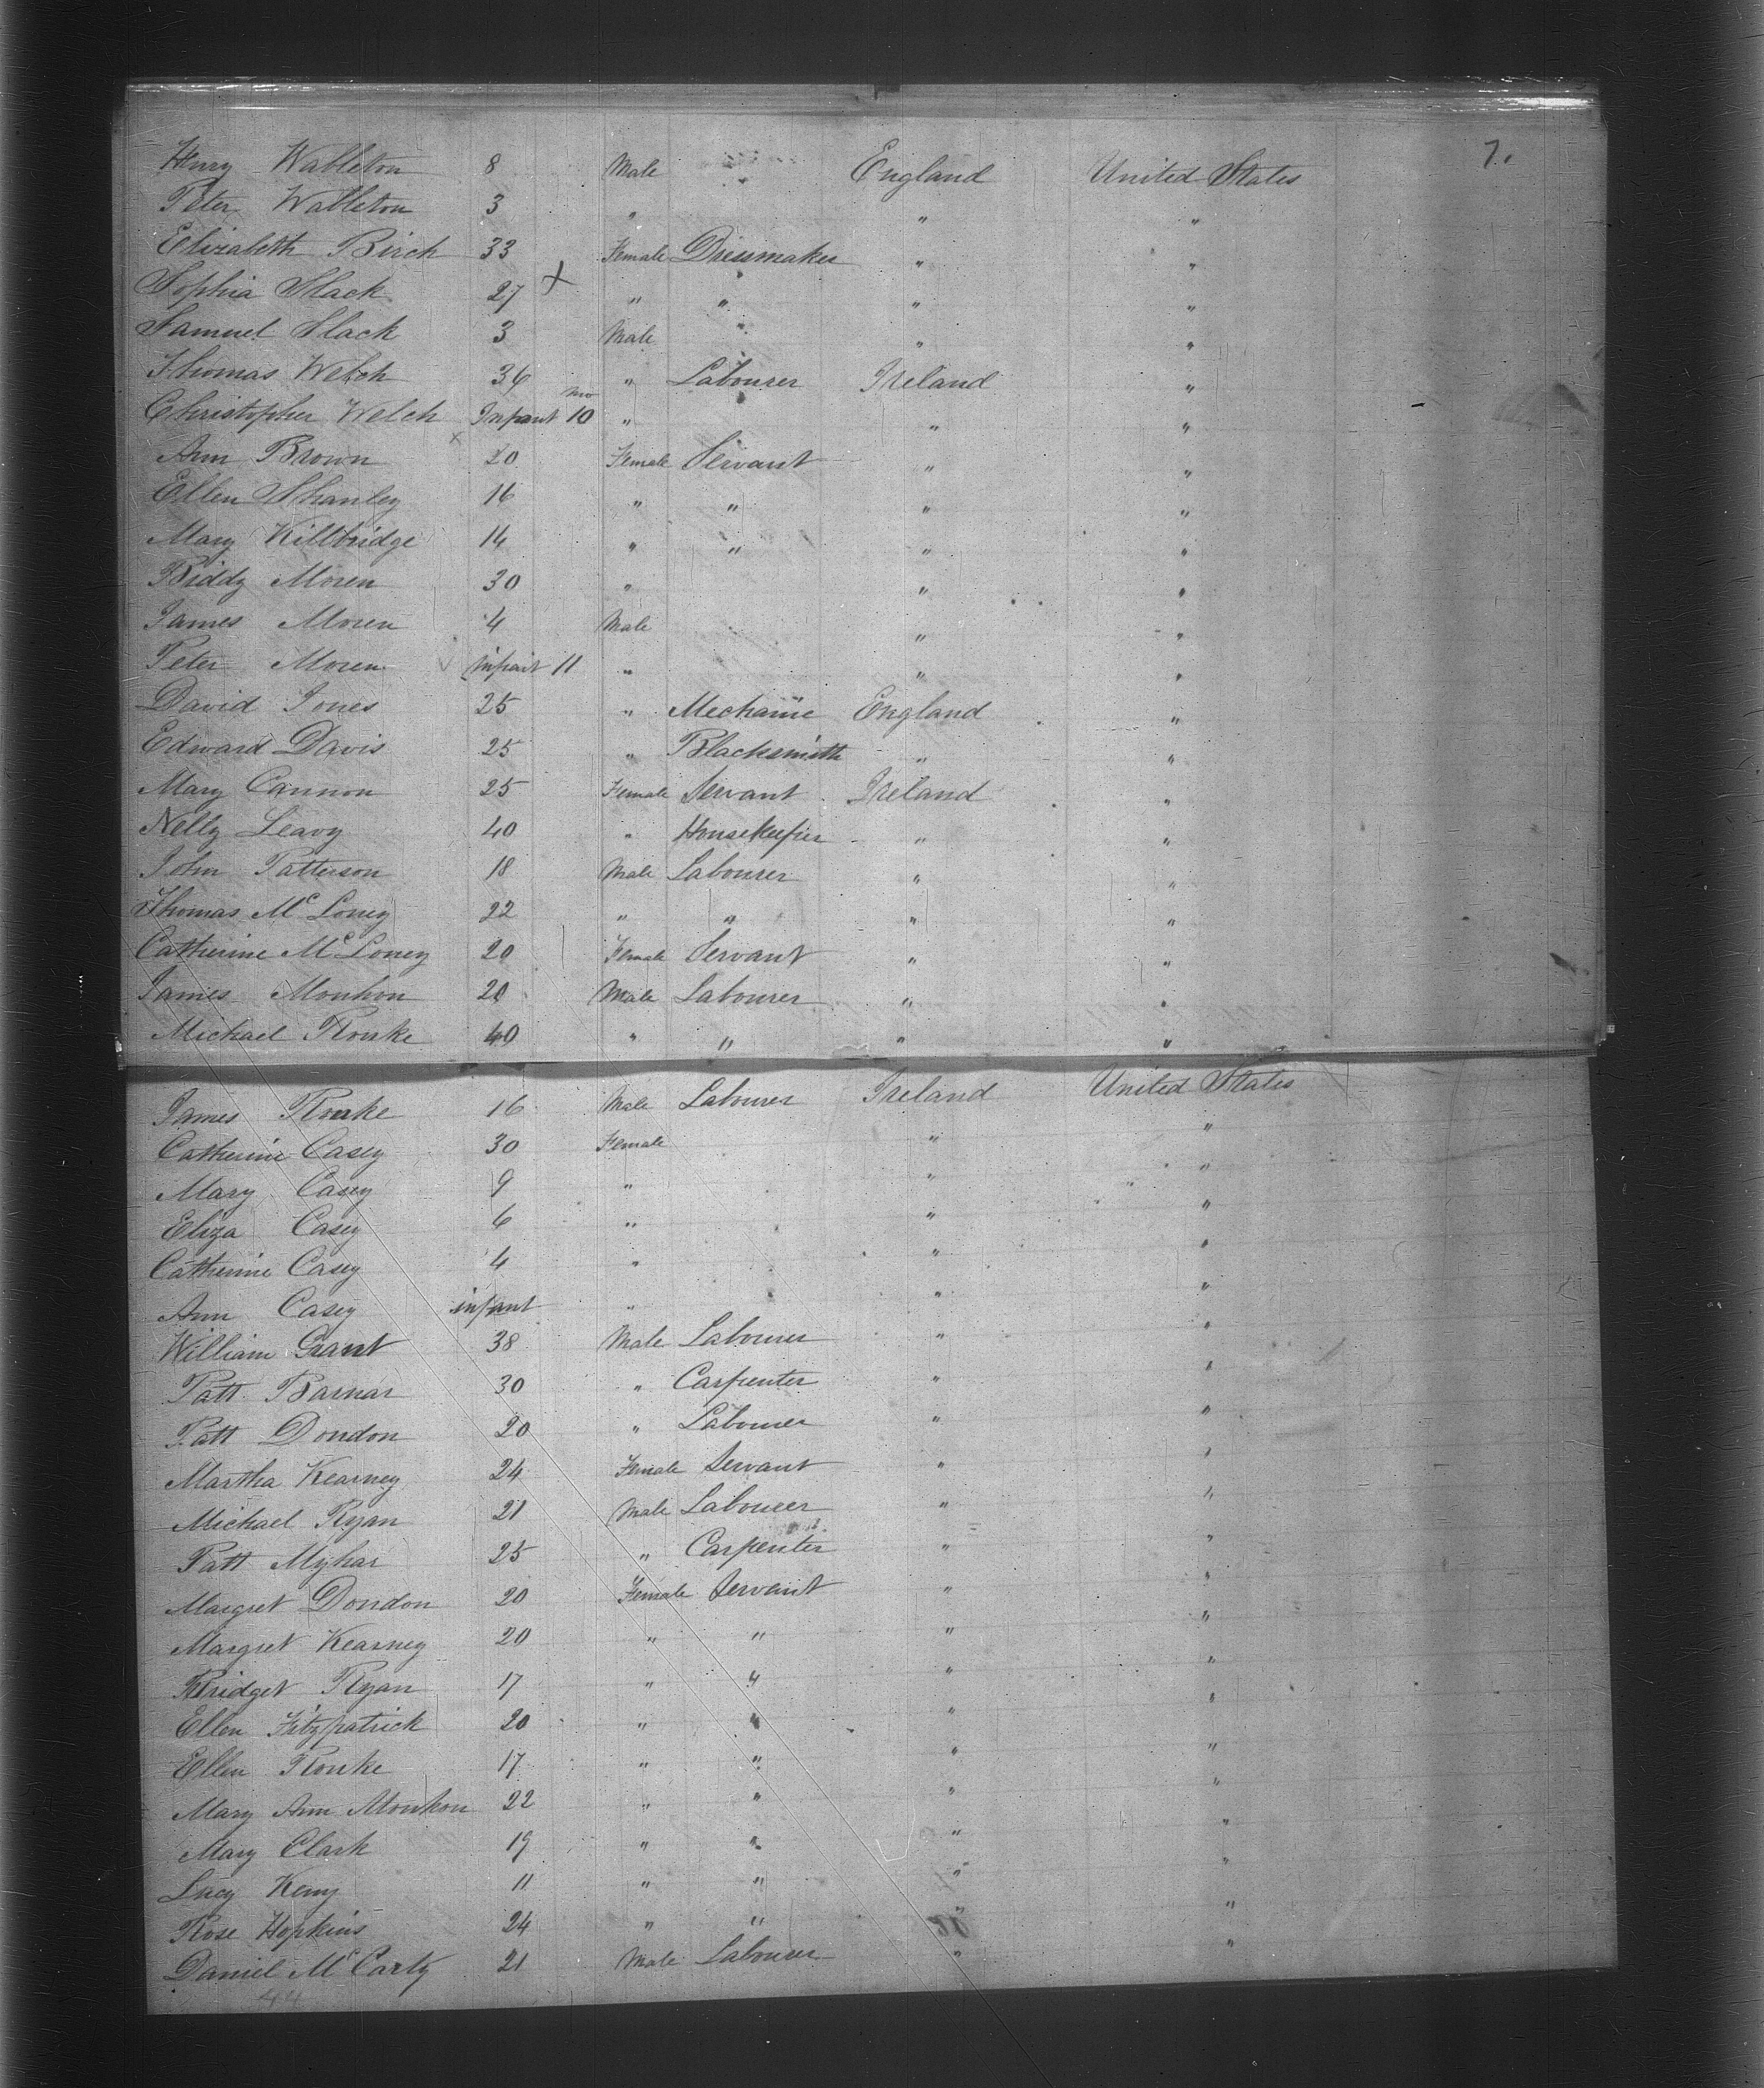 7.
Henry Wableton 8 Male " England United States
Peter Wableton 3 " " "
Elizabeth Birch 33 Female Dressmaker " "
Sophia Slack 27 + " " " "
Samuel Slack 3 Male " " "
Thomas Welch 36 " Labourer Ireland "
Christopher Welch Infant 10 mo " " "
Ann Brown x 20 Female Servant " "
Ellen Shanley 16 " " " "
Mary Killbridge 14 " " " "
Biddy Moren 30 " " "
James Moren 4 Male " "
Peter Moren infant 11 " " "
David Jones 25 " Mechanic England "
Edward Davis 25 " Blacksmith " "
Mary Cannon 25 Female Servant Ireland "
Nelly Leavy 40 " Housekeeper " "
John Patterson 18 Male Labourer " "
Thomas McLoney 22 " " " "
Catherine McLoney 20 Female Servant " "
James Monhon 20 Male Labourer " "
Michael Rourke 40 " " " "
James Rourke 16 Male Labourer Ireland United States
Catherine Casey 30 Female " "
Mary Casey 9 " " "
Eliza Casey 6 " " "
Catherine Casey 4 " " "
Ann Casey infant " " "
William Grant 38 Male Labourer " "
Patt Barnar 30 " Carpenter " "
Patt Dondon 20 " Labourer " "
Martha Kearney 24 Female Servant " "
Michael Ryan 21 Male Labourer " "
Patt Myhar 25 " Carpenter " "
Margret Dondon 20 Female Servant " "
Margret Kearney 20 " " " "
Bridget Ryan 17 " " " "
Ellen Fitzpatrick 20 " " " "
Ellen Rourke 17 " " " "
Mary Ann Monhon 22 " " " "
Mary Clark 19 " " " "
Lucy Keny 11 " " " "
Rose Hopkins 24 " " " "
Daniel McCarty 21 Male Labourer " "
44